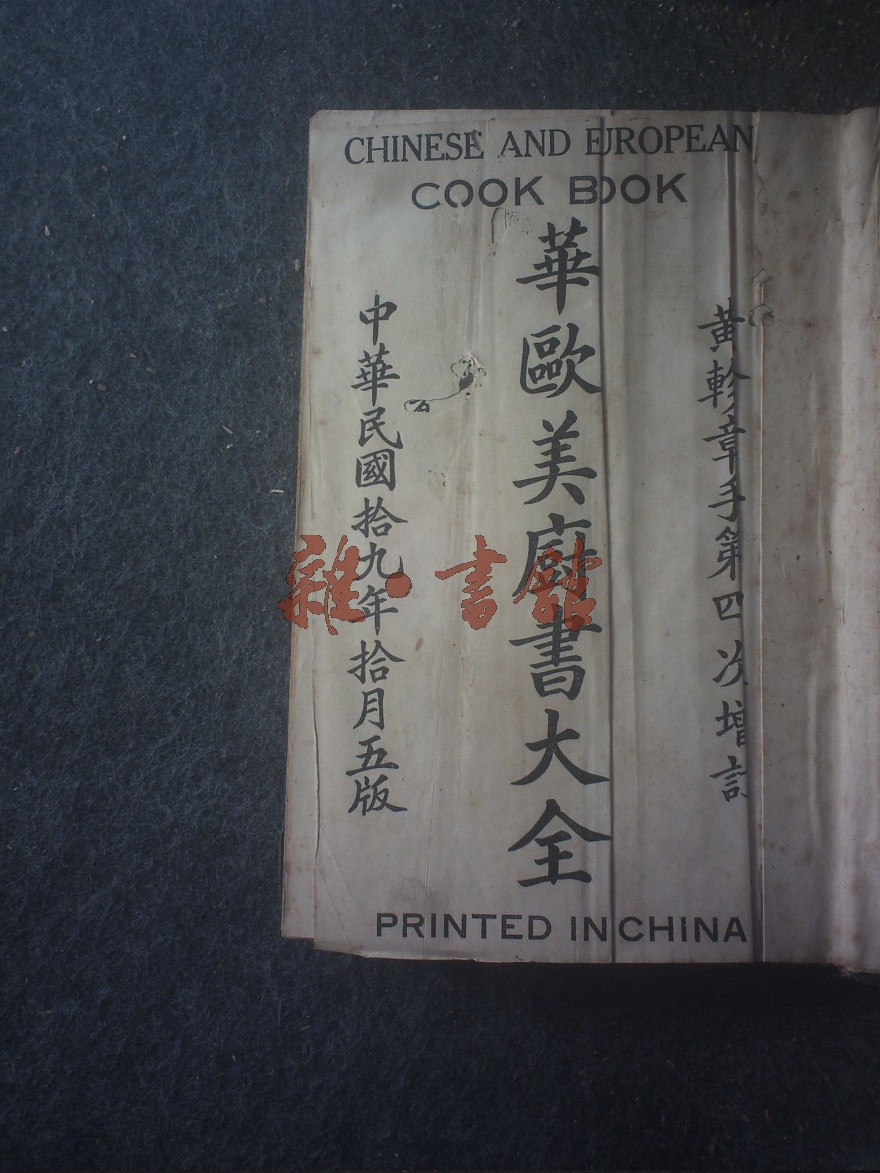 CHINESE AND EUROPEAN
COOK BOOK
黃軫章手第四次增訂
華歐美廚書大全
中華民國拾九年拾月五版
PRINTED IN CHINA
雜·書館